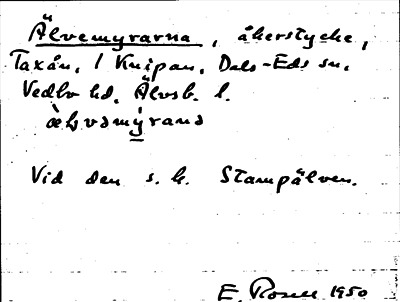 Älvemyrarna, åkerstycke,
Taxån, 1 Knipan, Dals-Eds sn.
Vedbo hd. Älvsb. l.
Vid den s. k. Stampälven.
E. Rosell 1950